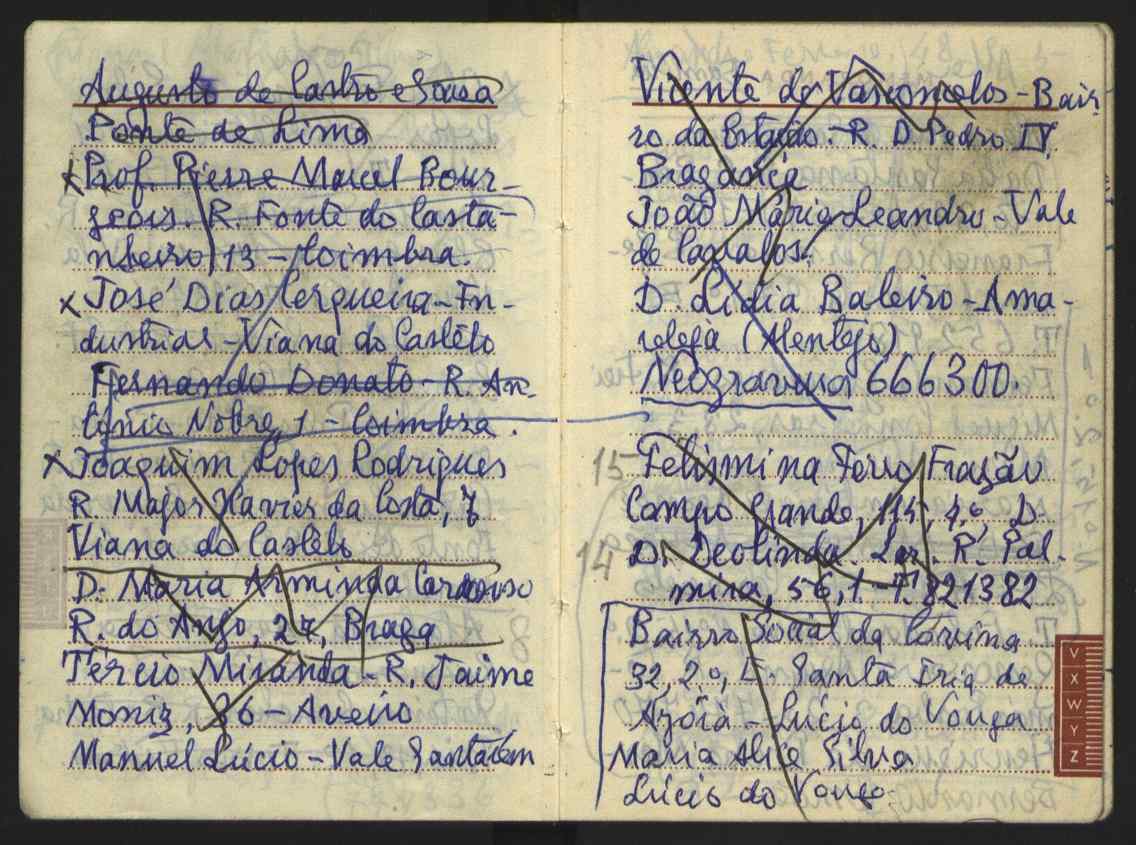 Augusto de Castro e Sousa
Ponte de Lima
x Prof. Pierre Marcel Bour-
geois. R. Fonte do Casta-
nheiro, 13 - Coimbra.
x José Dias Cerqueira - In-
dustrial - Viana do Castelo
Fernando Donato - R. An-
tónio Nobre, 1 - Coimbra.
x Joaquim Lopes Rodrigues
R. Major Xavier da Costa, 7
Viana do Castelo
D. Maria Arminda Cardoso
R. do Anjo, 27, Braga
Tércio Miranda - R. Jaime
Moniz, 36 - Aveiro
Manuel Lúcio - Vale Santarém
Vicente de Vasconcelos - Bair-
ro da Estação - R. D. Pedro IV
Bragança
João Mário Leandro - Vale
de Cavalos.
D. Lídia Baleiro - Ama-
releja (Alentejo)
Neogravura 666300.
15 Felismina Ferro Frazão
Campo Grande, 115, 4.º D.
14 D. Deolinda. R. Pal-
mira, 56, 1 - T. 821382
Bairro Social da Covina
32, 2.º, E. Santa Iria de
Azóia - Lúcio do Vouga
Maria Alice Silva
Lúcio do Vouga
V
X
W
Y
Z